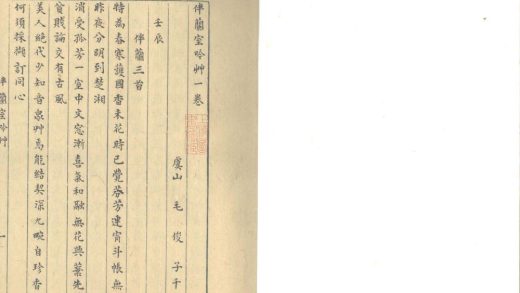 伴蘭室吟艸一卷
虞山 毛 俊 子千
壬辰
伴蘭三首
特為春寒護國香未花時已覺芬芳連宵斗帳無
昨夜分明到楚湘
消受孤芳一室中文窓漸喜氣和融無花與葉先
貧賤論交有古風
美人絕代少知音衆艸焉能結契深九畹自珍香
何須採擷訂同心
伴蘭室吟艸 一